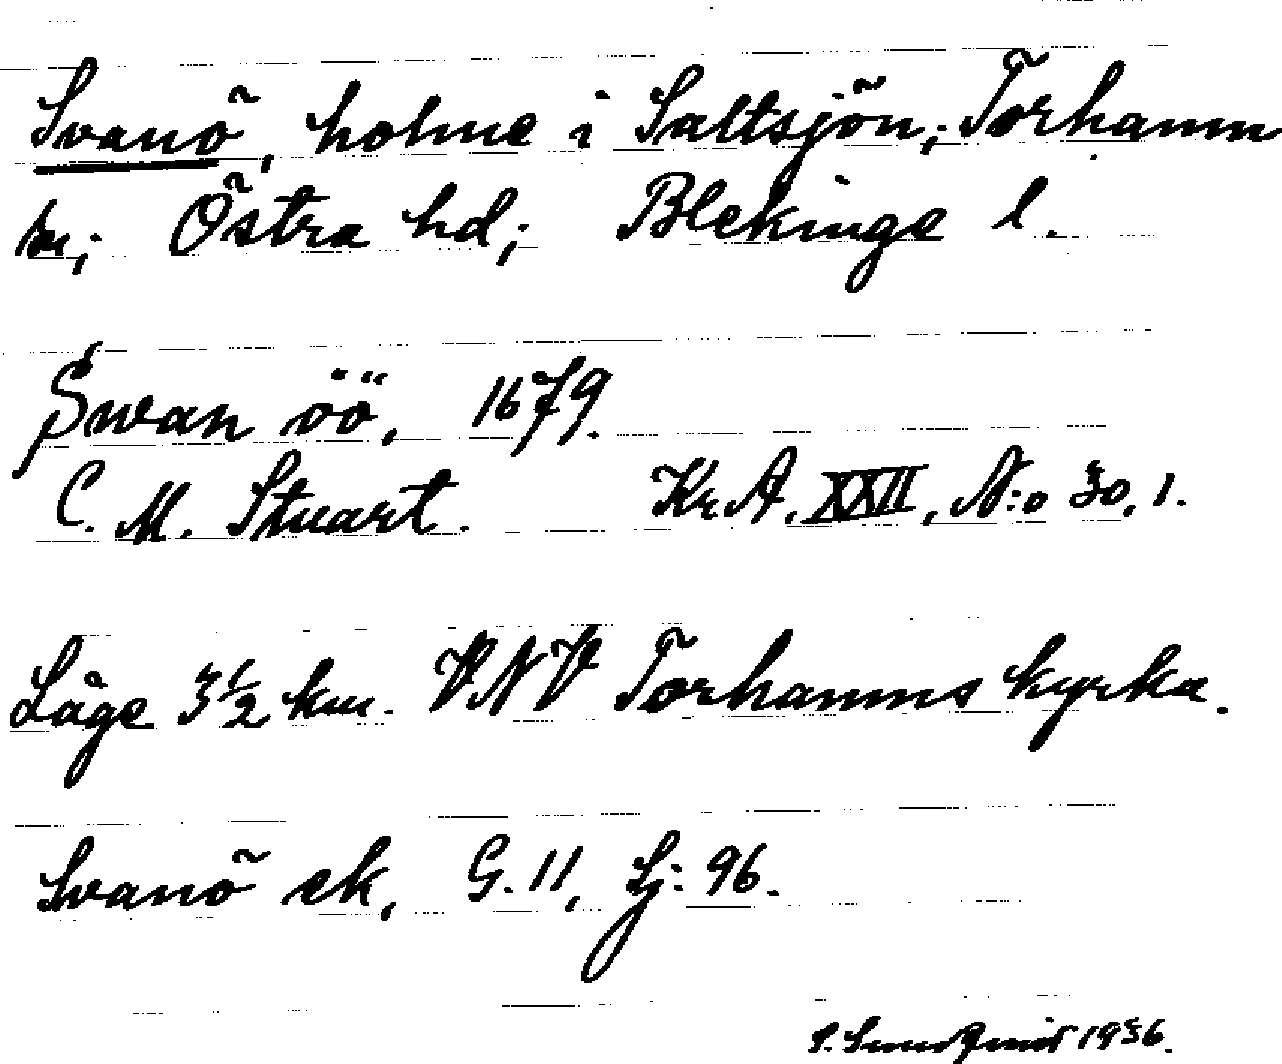 Svanö, holme i Saltsjön; Torhamn
sn; Östra hd; Blekinge l.
Swan öö, 1679.
C. M. Stuart. Kr A, XXII, N:o 30, 1.
Läge 3½ km. VNV Torhamns kyrka.
Svanö ek, G. 11, Sj: 96.
S. 1936.